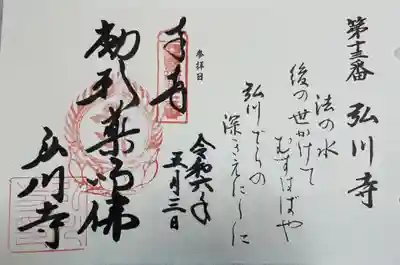 第十三番 弘川寺
法の水
後の世かけて
むすはばや
弘川でらの
深きえにしに
参拝日
令和六年
五月三日
奉拝
薬師佛
弘川寺